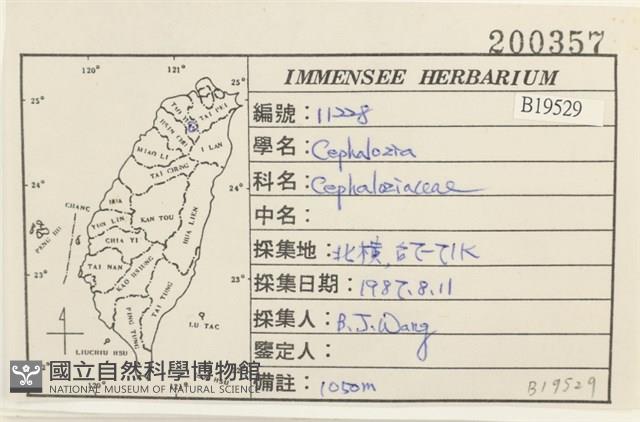 200357
IMMENSEE HERBARIUM
B19529
編號：11228
學名：Cephalozia
科名：Cephaloziaceae
中名：
採集地：北橫,
採集日期：1987.8.11
採集人：B.J.Wang
鑒定人：
備註：1050m
B19529
120° 121°
25° 25°
TAI PEI
I LAN
MIAO LI
TAI CHUNG
24° 24°
HUA
CHANG
YUN LIN
NAN TOU
HUA LIEN
PENG HU
CHIA YI
TAI NAN
KAO HSIUNG
TAI TUNG
23° 23°
PING TUNG
LU TAO
LIUCHIU HSU
120° 121°
國立自然科學博物館
NATIONAL MUSEUM OF NATURAL SCIENCE